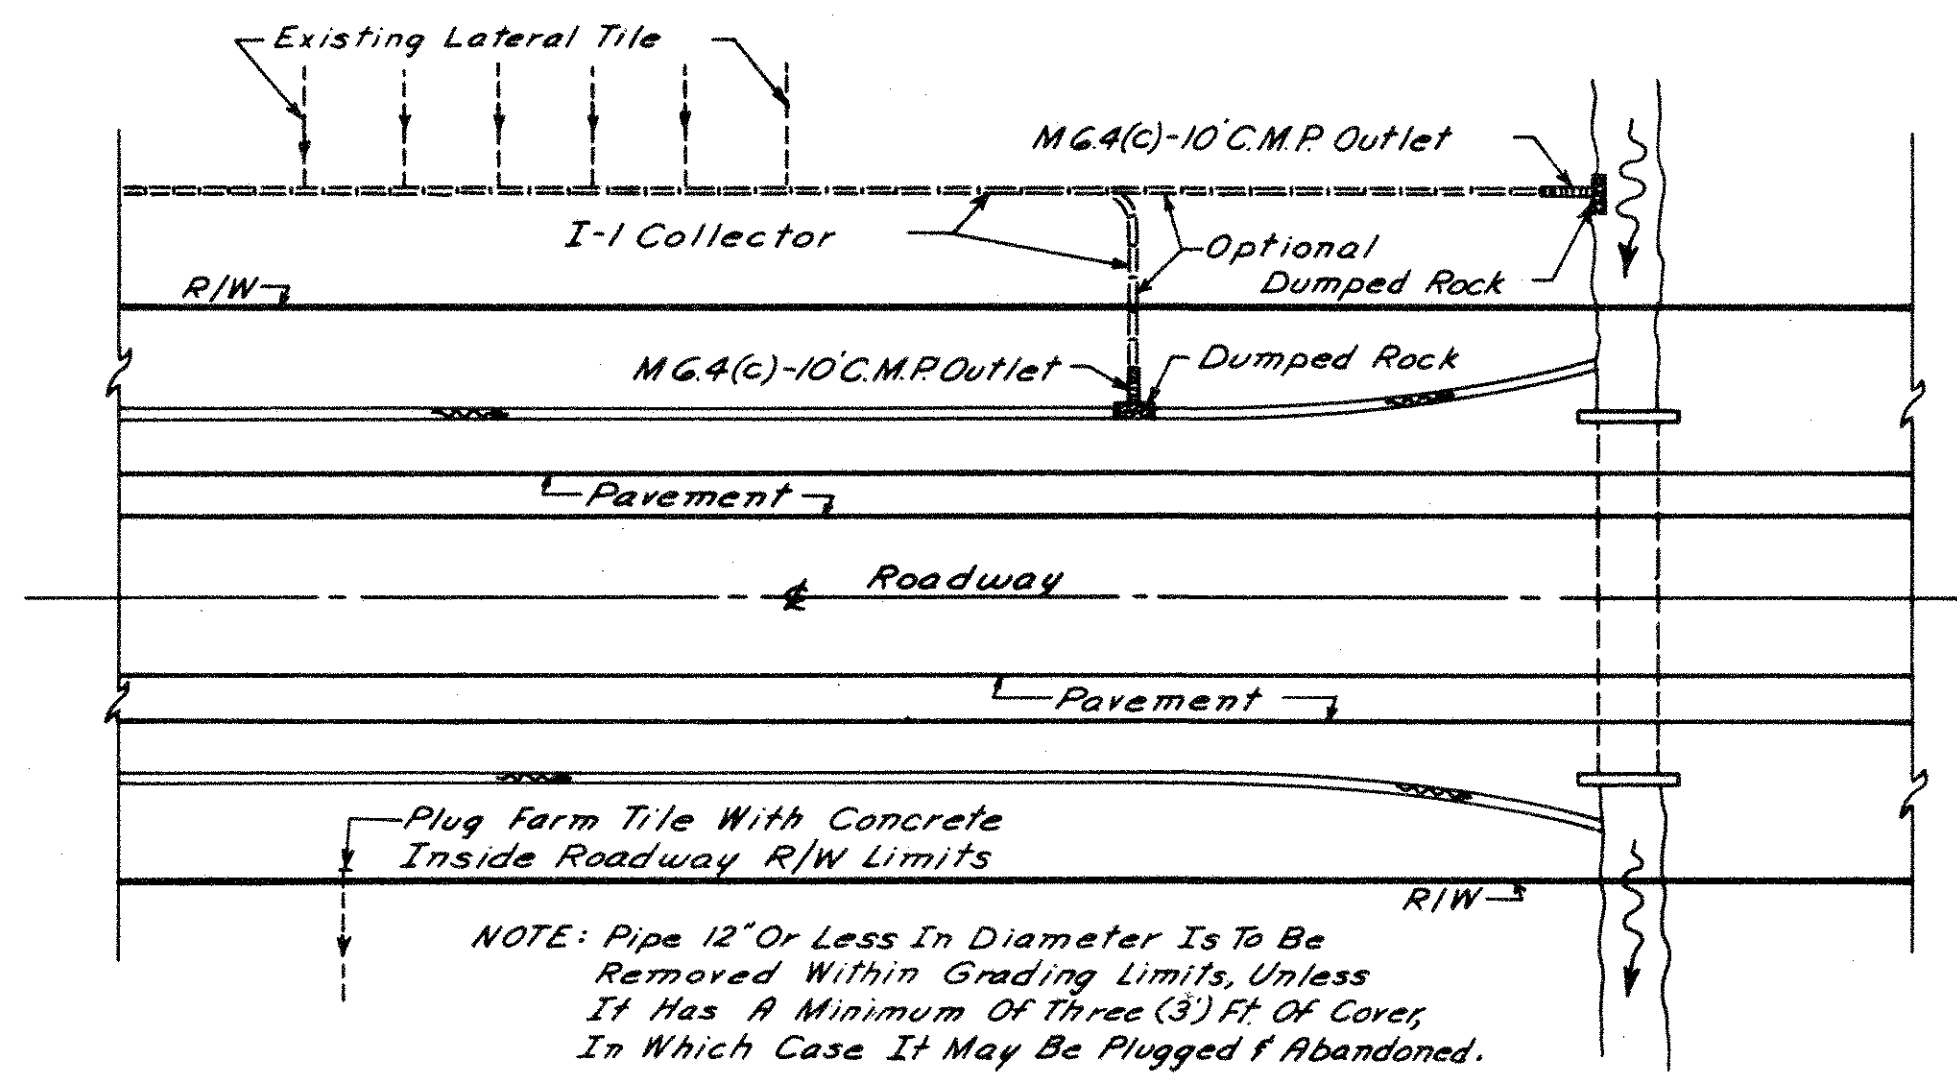 Existing Lateral Tile
M6.4(c)-10' C.M.P. Outlet
I-1 Collector
Optional
Dumped Rock
R/W
M6.4(c)-10' C.M.P. Outlet
Dumped Rock
Pavement
℄ Roadway
Pavement
Plug Farm Tile With Concrete
Inside Roadway R/W Limits
R/W
NOTE: Pipe 12" Or Less In Diameter Is To Be
Removed Within Grading Limits, Unless
It Has A Minimum Of Three (3') Ft. Of Cover,
In Which Case It May Be Plugged & Abandoned.